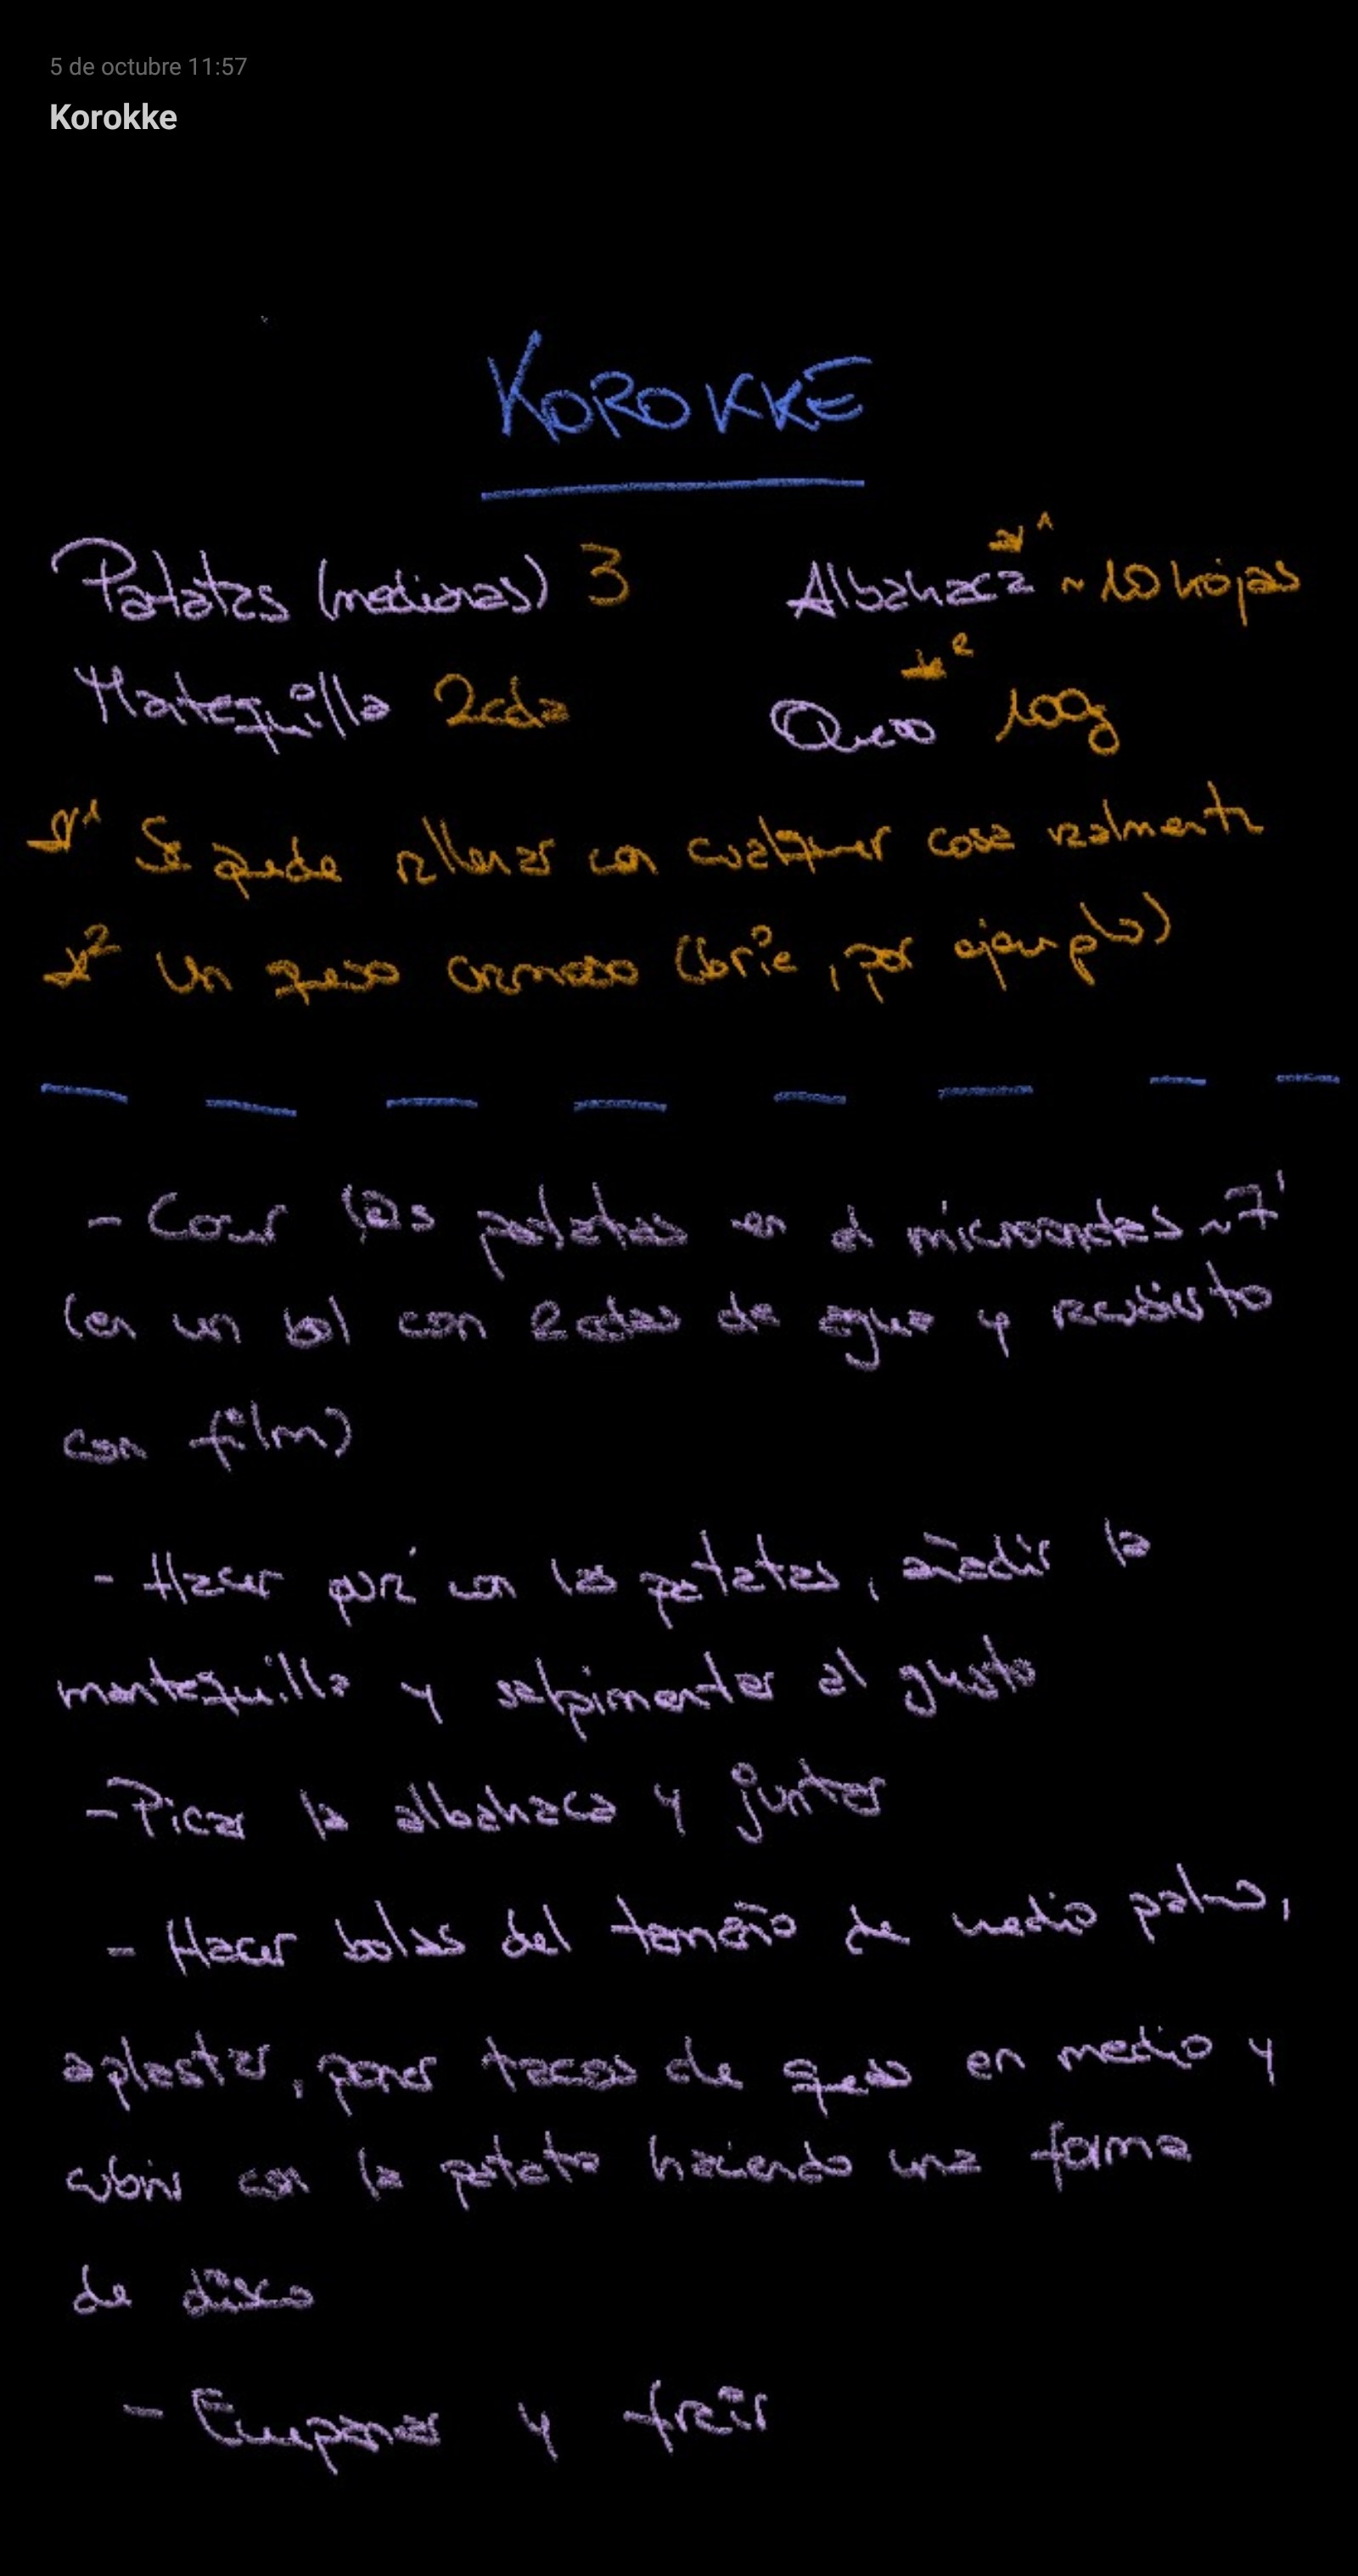 5 de octubre 11:57
Korokke
KOROKKE
Patatas (medianas) 3
Albahaca *1 ~10 hojas
Matequilla 2cda
Queso *2 100g
*1 Se puede rellenar con cualquier cosa realmente
*2 Un queso cremoso (brie, por ejemplo)
- Cocer las patatas en el microondas ~7'
(en un bol con 2cdas de agua y recubierto
con film)
- Hacer puré con las patatas, añadir la
mantequilla y salpimentar al gusto
- Picar la albahaca y juntar
- Hacer bolas del tamaño de medio palmo,
aplastar, poner tacos de queso en medio y
cubrir con la patata haciendo una forma
de disco
- Empanar y freír